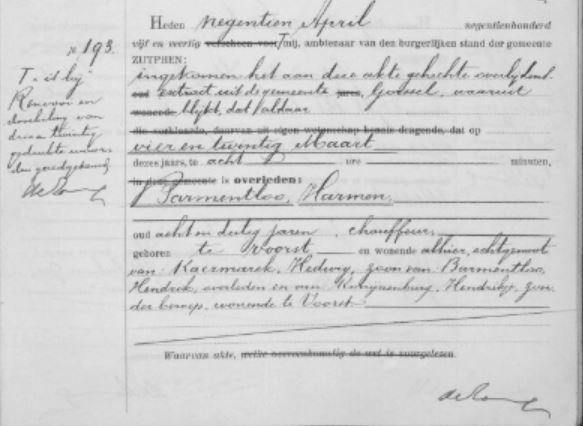 Heden negentien April negentienhonderd
No 193.
vijf en veertig verscheen voor mij, ambtenaar van den burgerlijken stand der gemeente
ZUTPHEN:
ingekomen het aan deze akte gehechte overlijdens
extract uit de gemeente Goessel, waaruit
blijkt, dat aldaar
die verklaarde, daarvan uit eigen wetenschap kennis dragende, dat op
vier en twintig Maart
dezes jaars, te acht ure minuten,
in deze gemeente is overleden:
Barmentloo, Harmen,
oud acht en dertig jaren, chauffeur,
geboren te Voorst en wonende alhier, echtgenoot
van: Kaczmarek, Hedwig, zoon van: Barmentloo,
Hendrik, overleden en van Hendrikje, zon
der beroep, wonende te Voorst.
Waarvan akte, welke overeenkomstig de wet is voorgelezen.
T: en bij
Renvooi en
doorhaling van
drie en twintig
gedrukte woor
den goedgekeurd